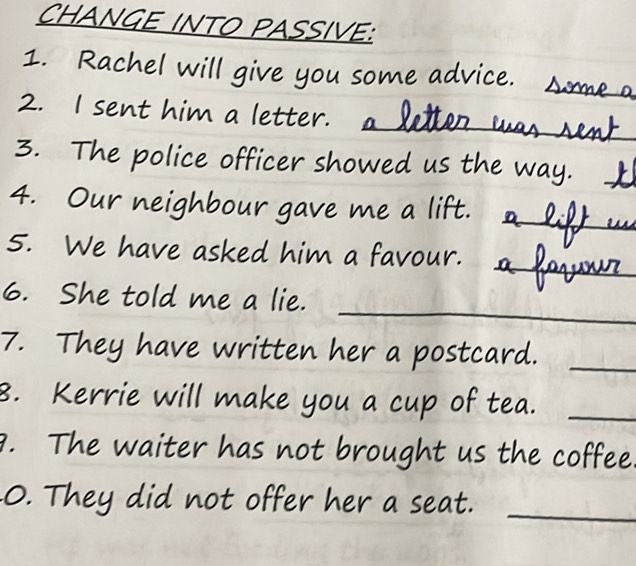 CHANGE INTO PASSIVE:
1. Rachel will give you some advice. some a
2. I sent him a letter. a letter was sent
3. The police officer showed us the way.
4. Our neighbour gave me a lift. a lift
5. We have asked him a favour. a favour
6. She told me a lie.
7. They have written her a postcard.
8. Kerrie will make you a cup of tea.
9. The waiter has not brought us the coffee.
0. They did not offer her a seat.